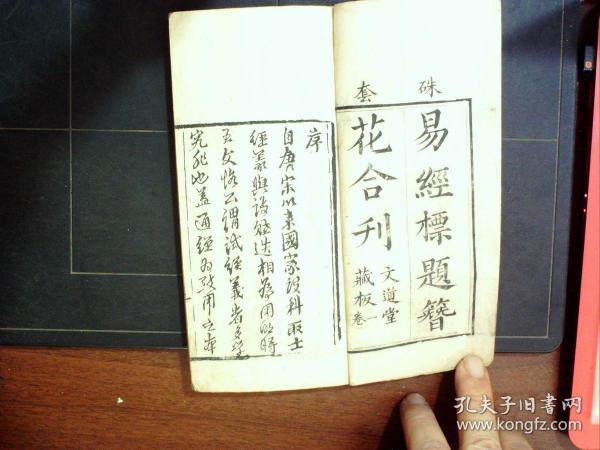 硃套
易經標題簪
花合刊
文道堂
藏板
卷一
序
自唐宋以來國家設科取士
經義與詩賦迭相為用的時
王文恪公謂試經義者多學
究非也蓋通經為致用之本
孔夫子旧书网
www.kongfz.com